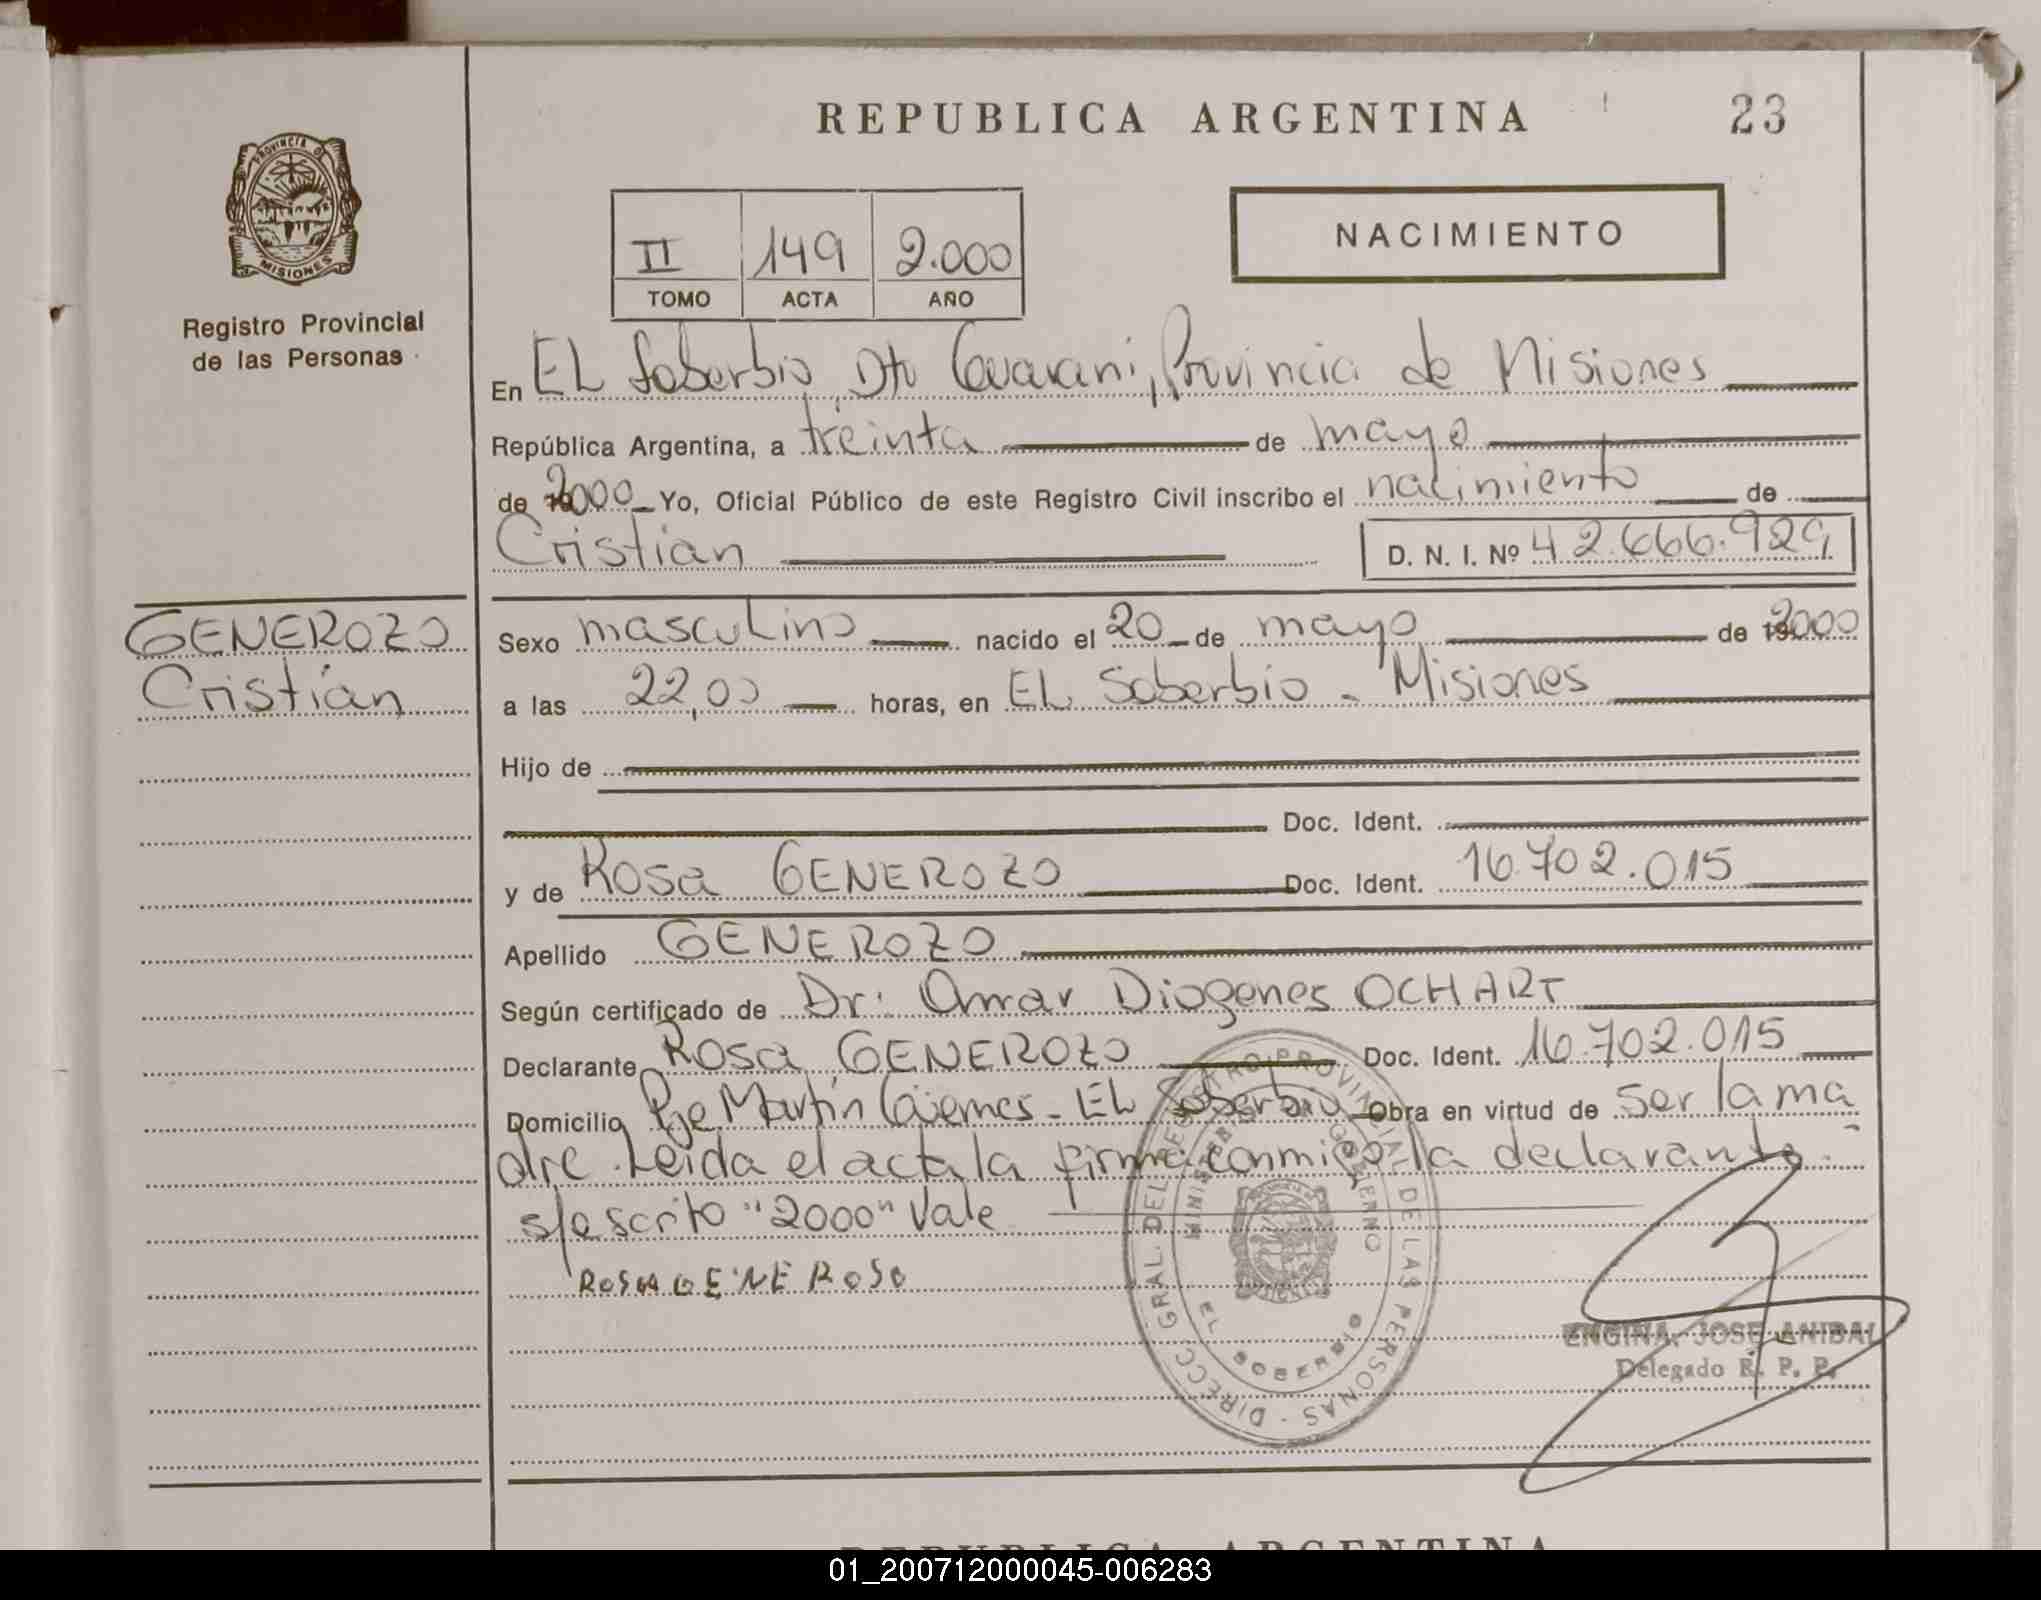 REPUBLICA ARGENTINA
23
PROVINCIA DE
MISIONES
Registro Provincial
de las Personas
II 149 2.000
TOMO ACTA AÑO
NACIMIENTO
En EL Soberbio, Dto Guarani, Provincia de Misiones
República Argentina, a treinta de mayo
de 2000 Yo, Oficial Público de este Registro Civil inscribo el nacimiento de
Cristian D. N. I. Nº 42.666.929
GENEROZO
Cristian
Sexo masculino nacido el 20 de mayo de 2000
a las 22,00 horas, en EL Soberbio - Misiones
Hijo de
Doc. Ident.
y de Rosa GENEROZO Doc. Ident. 16.702.015
Apellido GENEROZO
Según certificado de Dr. Omar Diogenes OCHART
Declarante Rosa GENEROZO Doc. Ident. 16.702.015
Domicilio Pje Martín Güemes - EL Soberbio Obra en virtud de ser la ma
dre. Leida el acta la firma conmigo la declarante.
s/escrito "2000" Vale
ROSA GENEROSO
DIRECC GRAL DEL REGISTRO PROVINCIAL DE LAS PERSONAS
MINISTERIO DE GOBIERNO
EL SOBERBIO
ENGINA, JOSE ANIBAL
Delegado R. P. P.
REPUBLICA ARGENTINA
01_200712000045-006283